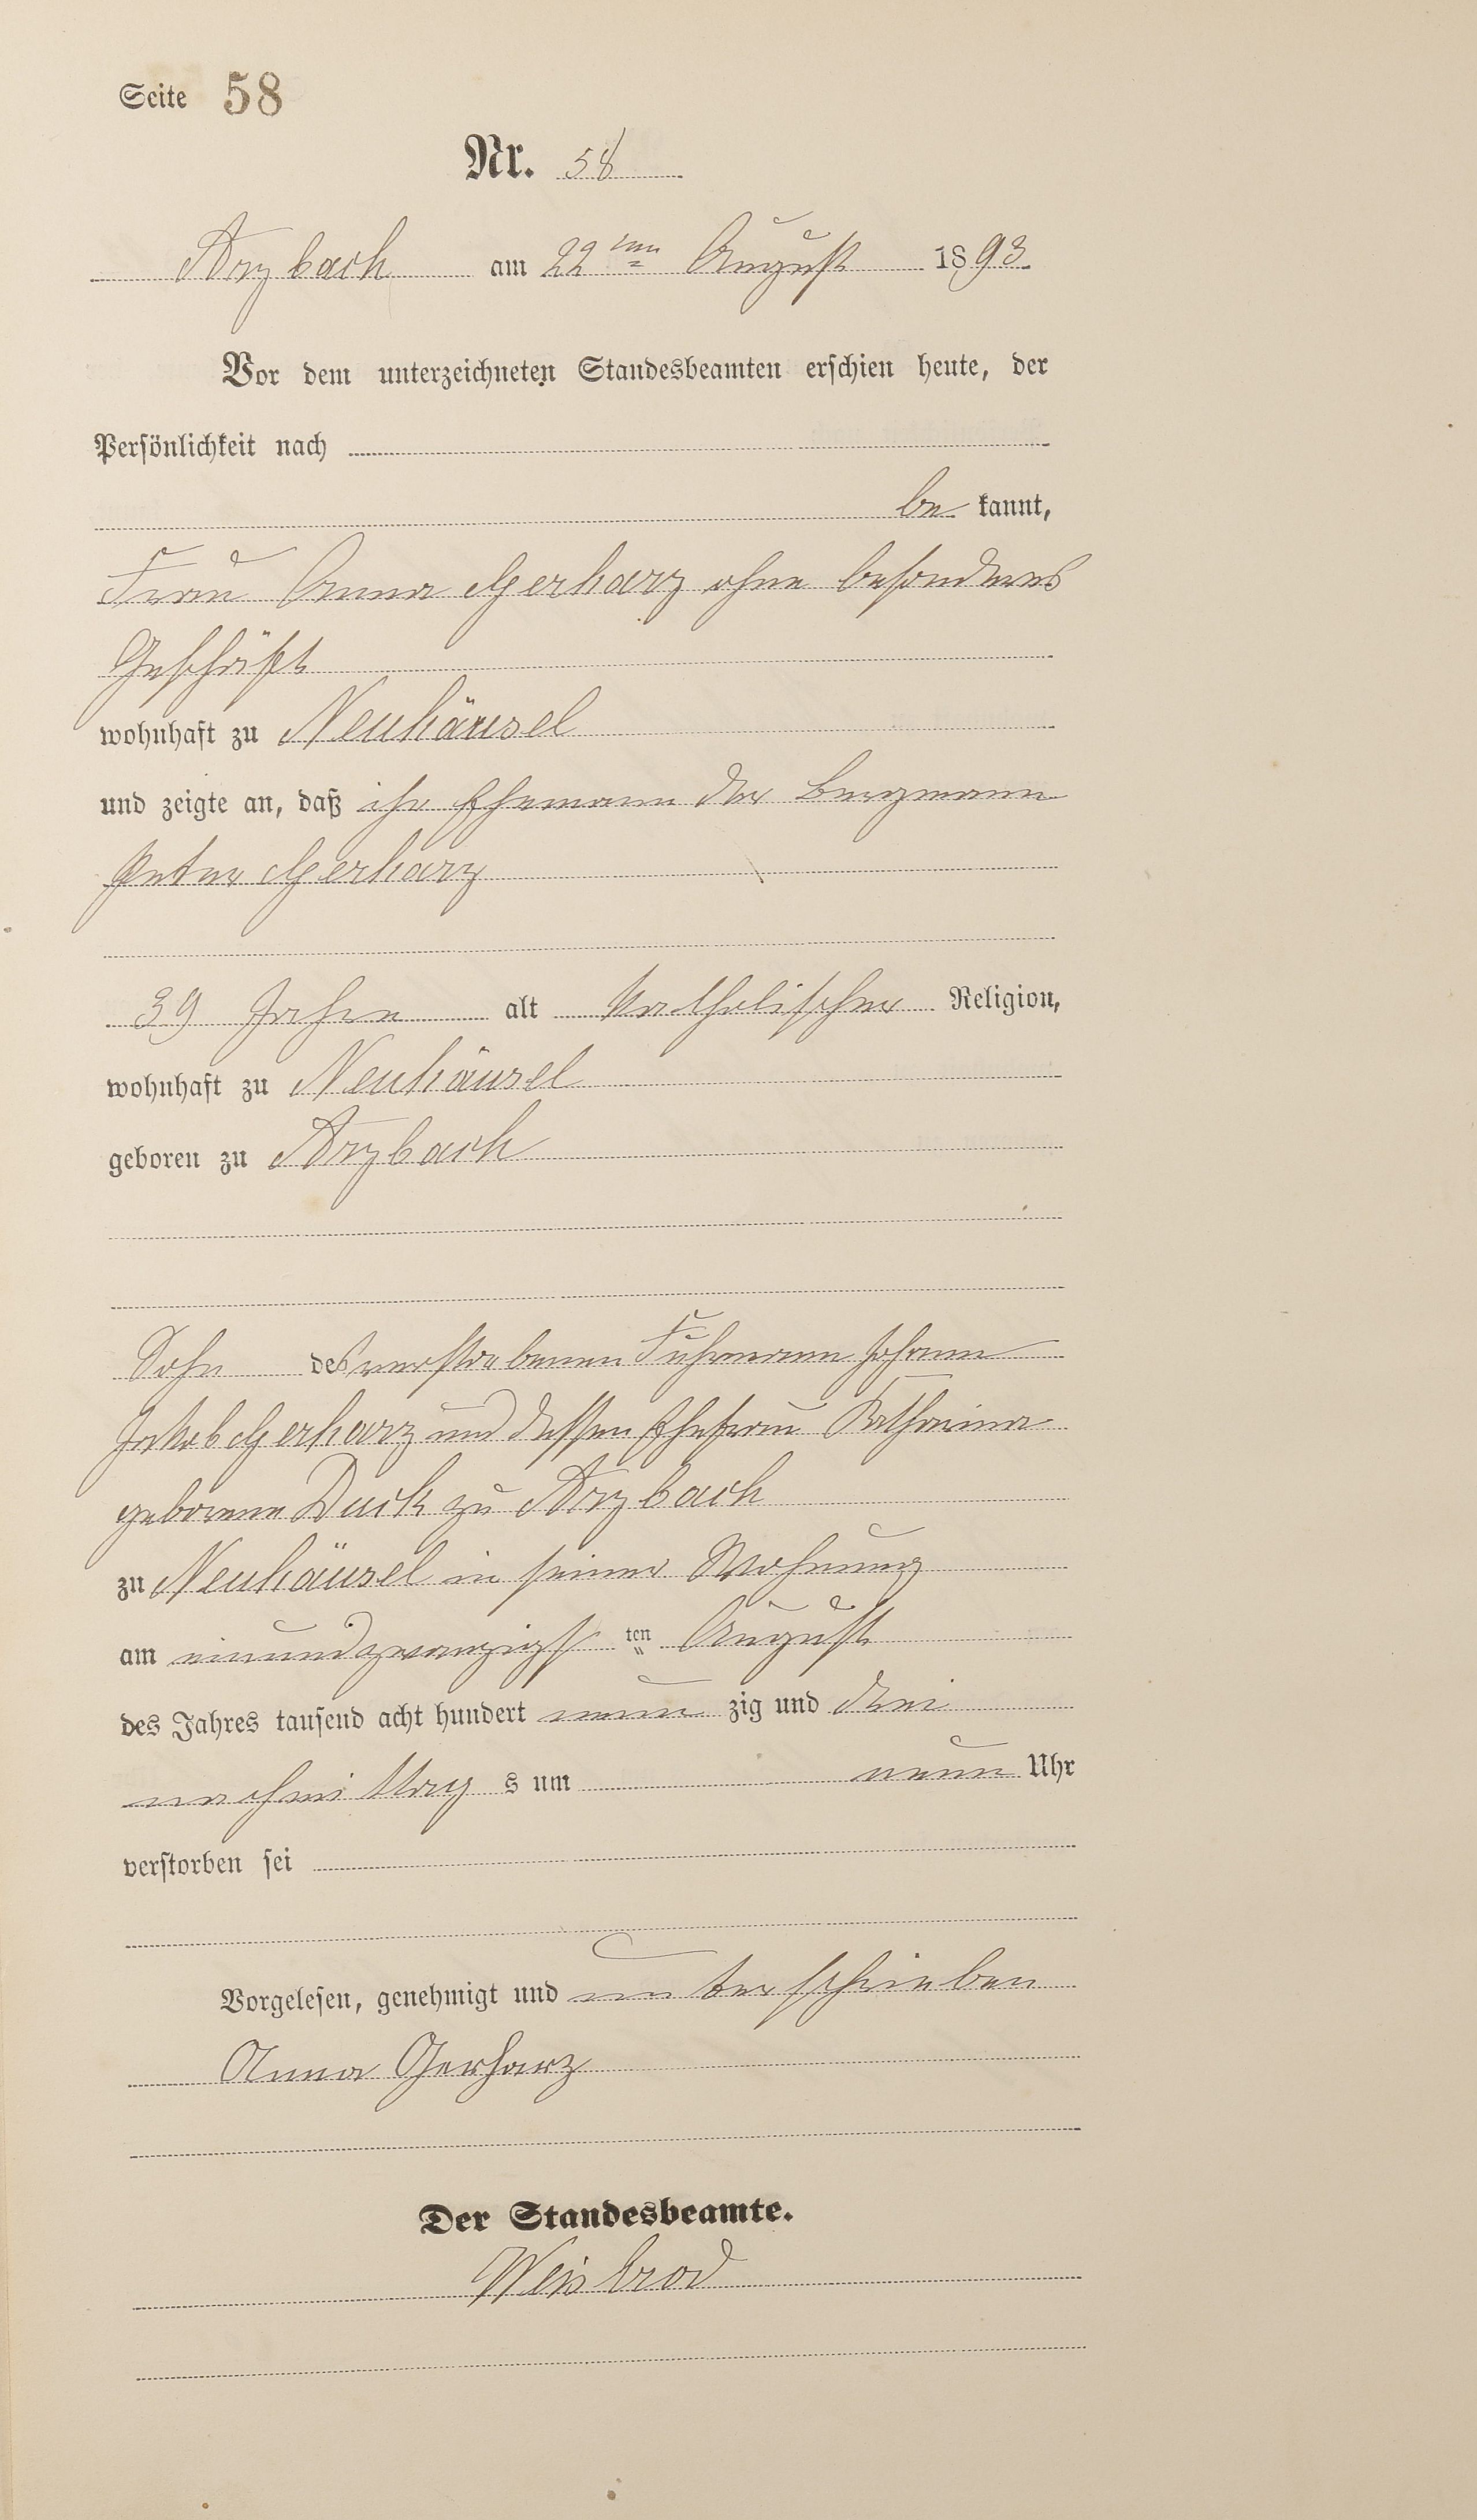 Seite 58
Nr. 58
Arzbach am 22ten August 1893
Vor dem unterzeichneten Standesbeamten erschien heute, der
Persönlichkeit nach
be kannt,
Frau Anna Gerharz ohne besonderes
Geschäft
wohnhaft zu Neuhäusel
und zeigte an, daß ihr Ehemann der Bergmann
Peter Gerharz
39 Jahre alt katholischer Religion,
wohnhaft zu Neuhäusel
geboren zu Arzbach
Sohn des verstorbenen Fuhrmann Johann
Jakob Gerharz und dessen Ehefrau Katharina
geborene Duck zu Arzbach
zu Neuhäusel in seiner Wohnung
am einundzwanzigst ten August
des Jahres tausend acht hundert neun zig und drei
nachmittag s um neun Uhr
verstorben sei
Vorgelesen, genehmigt und unterschrieben
Anna Gerharz
Der Standesbeamte.
Weisbrod